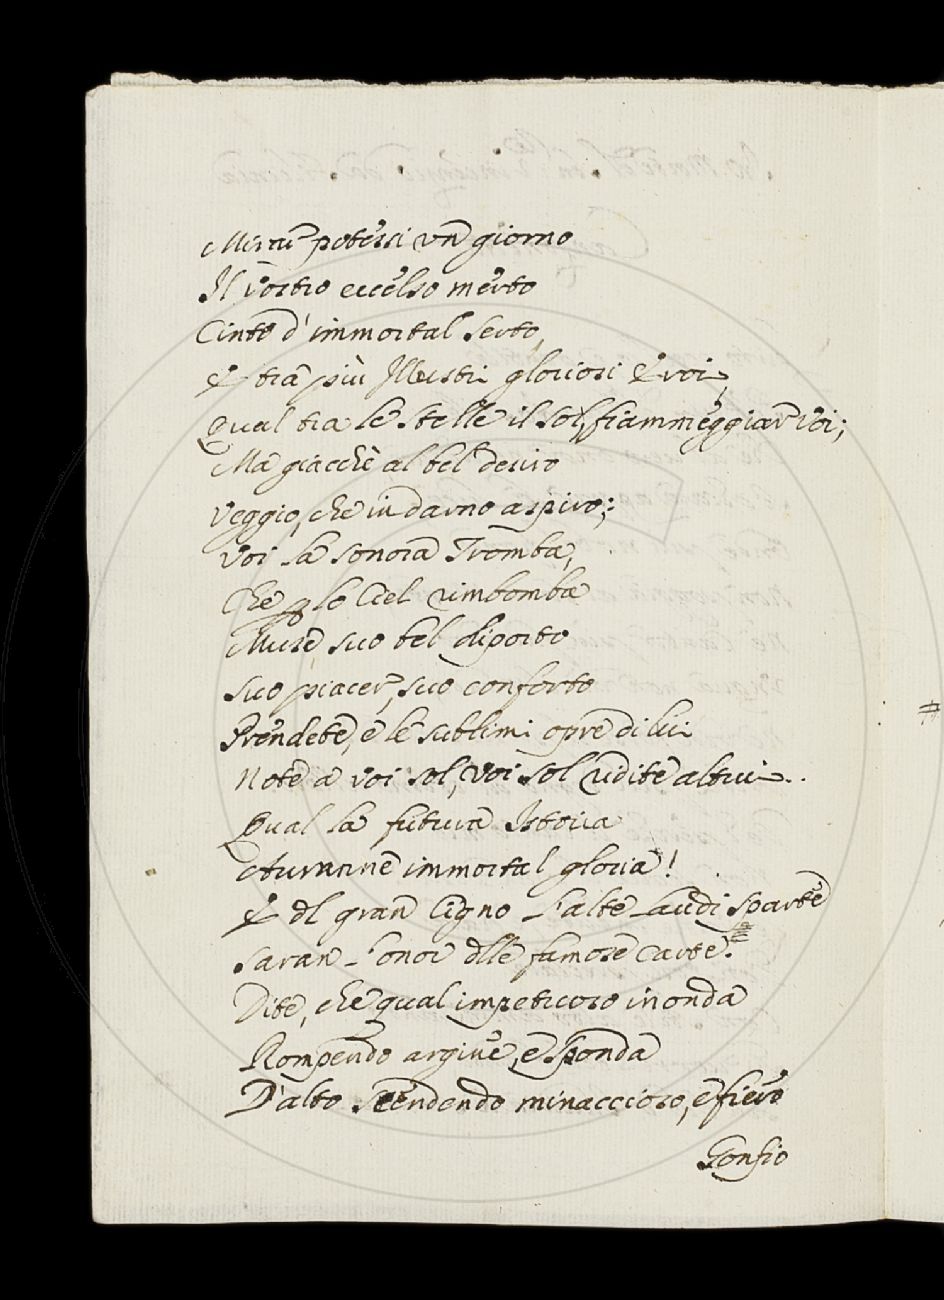 Mirar potessi un giorno
Il vostro eccelso merto
Cinto d'immortal serto,
E tra più Illustri gloriosi Eroi,
Qual tra le stelle il sol, fiammeggiar voi;
Ma giacchè al bel desiro
Veggio, che indarno aspiro;
Voi la sonora Tromba,
Che p lo Ciel rimbomba
Muse suo bel diporto
Suo piacer, suo conforto
Prendete, e le sublimi opre di lui
Note a voi sol, voi sol udite altrui.
Qual la futura Istoria
Avranne immortal gloria!
E dl gran Cigno l'alte laudi sparte
Saran l'onor dlle famose carte.
Dite, che qual impetuoso inonda
Rompendo argine, e sponda
D'alto scendendo minaccioso, e fiero
Gonfio